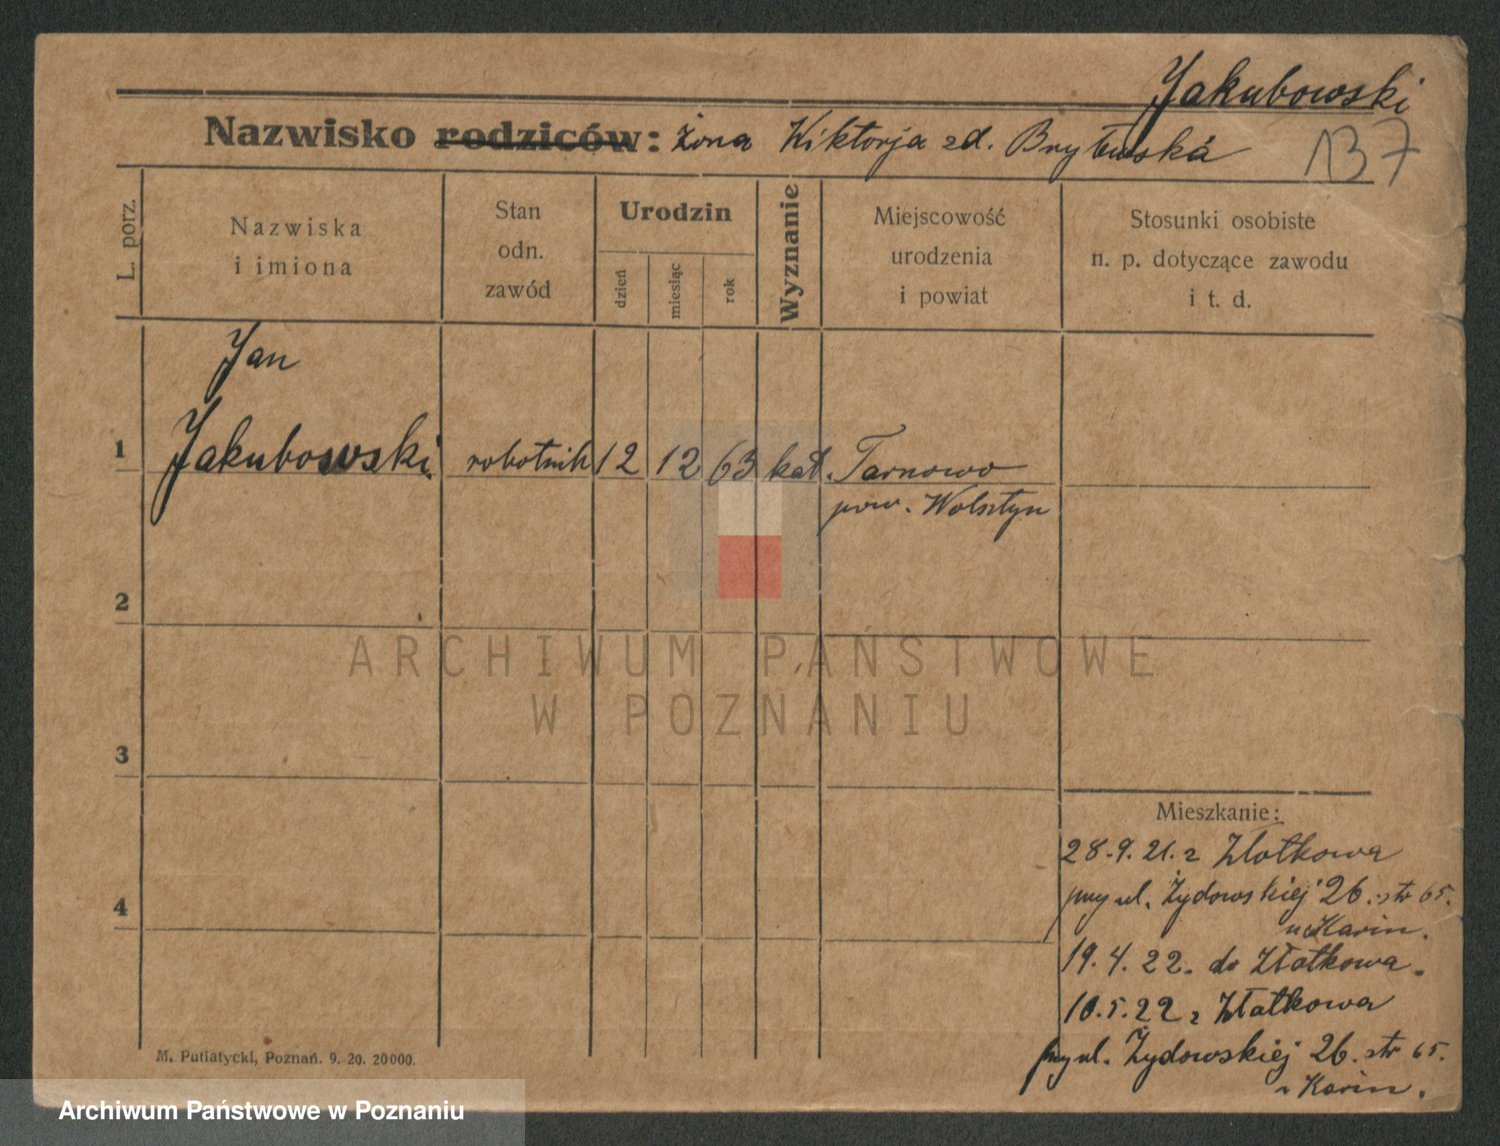 Jakubowski
Nazwisko rodziców: żona Wiktorja zd. Brytuska
137
L. porz.
Nazwiska
i imiona
Stan
odn.
zawód
Urodzin
dzień
miesiąc
rok
Wyznanie
Miejscowość
urodzenia
i powiat
Stosunki osobiste
n. p. dotyczące zawodu
i t. d.
Jan
1 Jakubowski robotnik 12 12 63 kat. Tarnowo
pow. Wolsztyn
2
3
4
Mieszkanie:
28.9.21. z Złotkowa
przy ul. Żydowskiej 26. str 65.
u Karin.
19.4.22. do Złotkowa.
10.5.22 z Złotkowa
przy ul. Żydowskiej 26. str 65.
Karin.
M. Putiatycki, Poznań. 9. 20. 20000.
ARCHIWUM PAŃSTWOWE
W POZNANIU
Archiwum Państwowe w Poznaniu